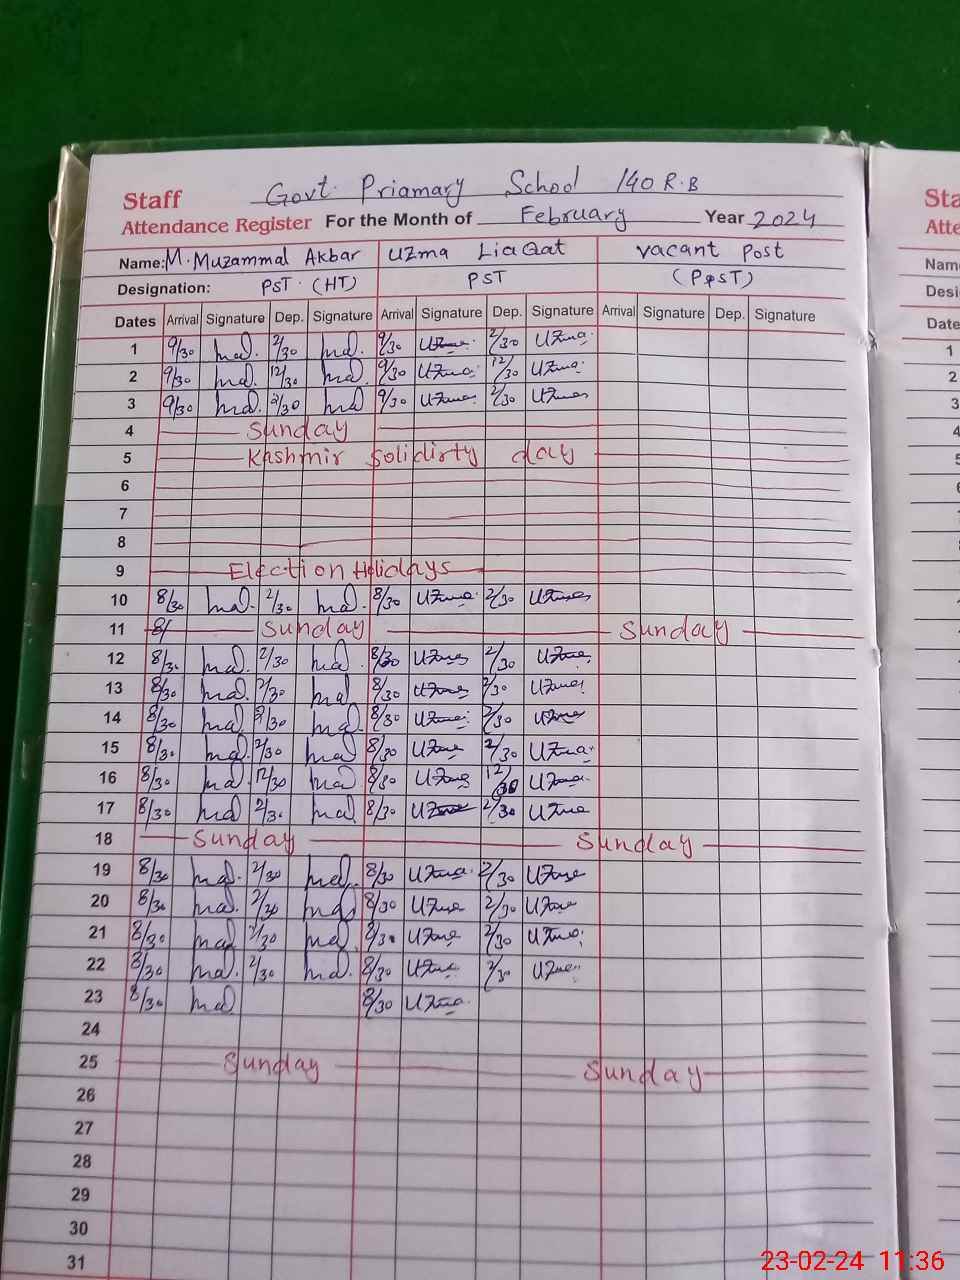 Govt. Priamary School 140 R.B
Staff
Attendance Register For the Month of February Year 2024
Name: M. Muzammal Akbar Uzma LiaQat vacant Post
Designation: PST (HT) PST (PST)
Dates Arrival Signature Dep. Signature Arrival Signature Dep. Signature Arrival Signature Dep. Signature
1 9/30 2/30 9/30 Uzma 2/30 Uzma
2 9/30 12/30 9/30 Uzma 12/30 Uzma
3 9/30 2/30 9/30 Uzma 2/30 Uzma
4 Sunday
5 Kashmir Solidirty day
6
7
8
9 Election Holidays
10 8/30 2/30 8/30 Uzma 2/30 Uzma
11 8/ Sunday Sunday
12 8/30 2/30 8/30 Uzma 2/30 Uzma
13 8/30 2/30 8/30 Uzma 2/30 Uzma
14 8/30 2/30 8/30 Uzma 2/30 Uzma
15 8/30 2/30 8/30 Uzma 2/30 Uzma
16 8/30 12/30 8/30 Uzma 12/30 Uzma
17 8/30 2/30 8/30 Uzma 2/30 Uzma
18 Sunday Sunday
19 8/30 2/30 8/30 Uzma 2/30 Uzma
20 8/30 2/30 8/30 Uzma 2/30 Uzma
21 8/30 2/30 8/30 Uzma 2/30 Uzma
22 8/30 2/30 8/30 Uzma 2/30 Uzma
23 8/30 8/30 Uzma
24
25 Sunday Sunday
26
27
28
29
30
31
23-02-24 11:36